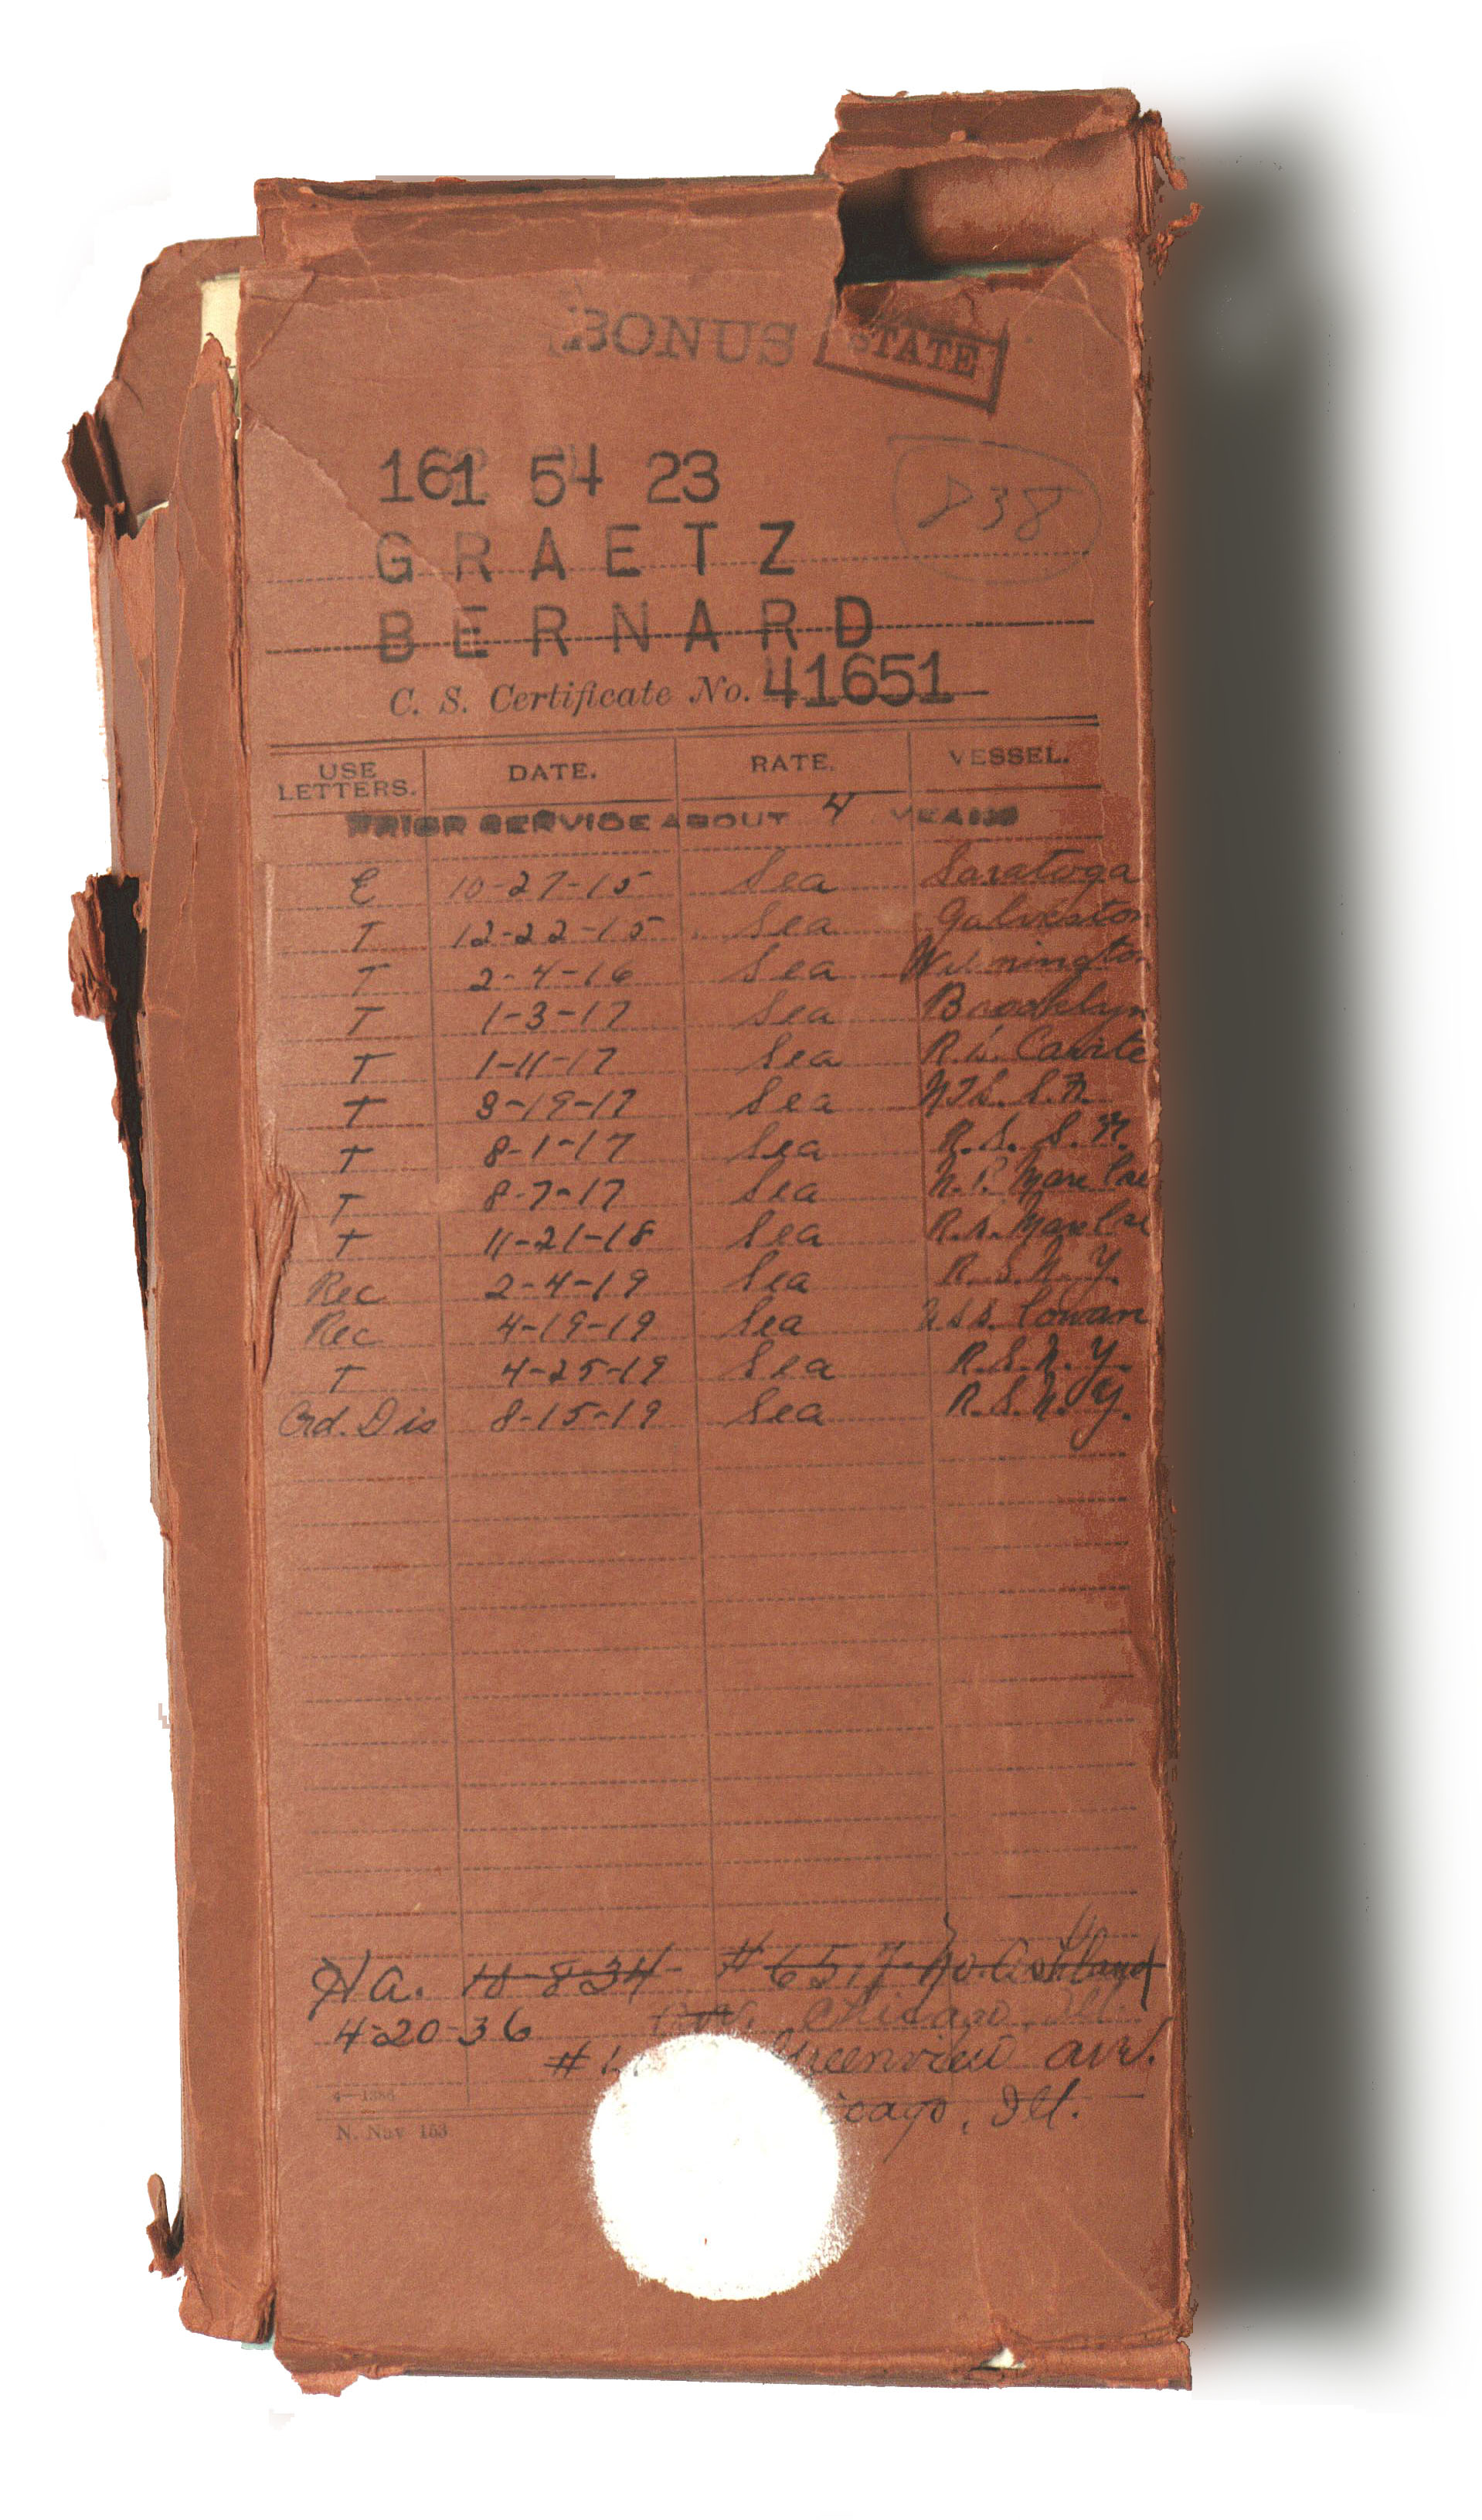 BONUS STATE
161 54 23
D38
GRAETZ
BERNARD
C. S. Certificate No. 41651
USE LETTERS. DATE. RATE. VESSEL.
PRIOR SERVICE ABOUT 4 YEARS
E 10-27-15 Sea Saratoga
T 12-22-15 Sea Galveston
T 2-4-16 Sea Wilmington
T 1-3-17 Sea Brooklyn
T 1-11-17 Sea R.S. Cavite
T 3-19-17 Sea N.T.S. S.F.
T 8-1-17 Sea R.S. S.F.
T 8-7-17 Sea N.P. Mare Isl
T 11-21-18 Sea R.S. Mare Isl
Rec 2-4-19 Sea R.S.N.Y.
Rec 4-19-19 Sea U.S.S. Cowan
T 4-25-19 Sea R.S.N.Y.
Ord. Dis 8-15-19 Sea R.S.N.Y.
Ha. 10-8-34 #6517 No. Ashland
Chicago, Ill.
4-20-36
# Greenview ave.
cago, Ill.
4—1386
N. Nav 153